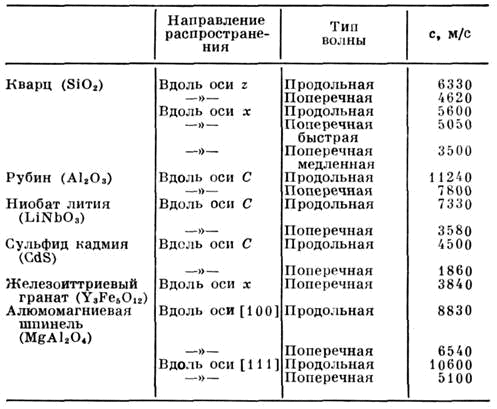 Направление распростране- ния | Тип волны | c, м/с
Кварц (SiO₂) | Вдоль оси z | Продольная | 6330
—»— | Поперечная | 4620
Вдоль оси x | Продольная | 5600
—»— | Поперечная | 5050
быстрая
—»— | Поперечная | 3500
медленная
Рубин (Al₂O₃) | Вдоль оси C | Продольная | 11240
—»— | Поперечная | 7800
Ниобат лития | Вдоль оси C | Продольная | 7330
(LiNbO₃)
—»— | Поперечная | 3580
Сульфид кадмия | Вдоль оси C | Продольная | 4500
(CdS)
—»— | Поперечная | 1860
Железоиттриевый | Вдоль оси x | Поперечная | 3840
гранат (Y₃Fe₅O₁₂)
Алюмомагниевая | Вдоль оси [100] | Продольная | 8830
шпинель
(MgAl₂O₄)
—»— | Поперечная | 6540
Вдоль оси [111] | Продольная | 10600
—»— | Поперечная | 5100